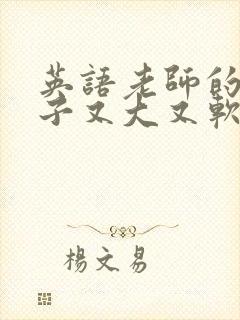 英語老師的
子又大又軟
楊文易